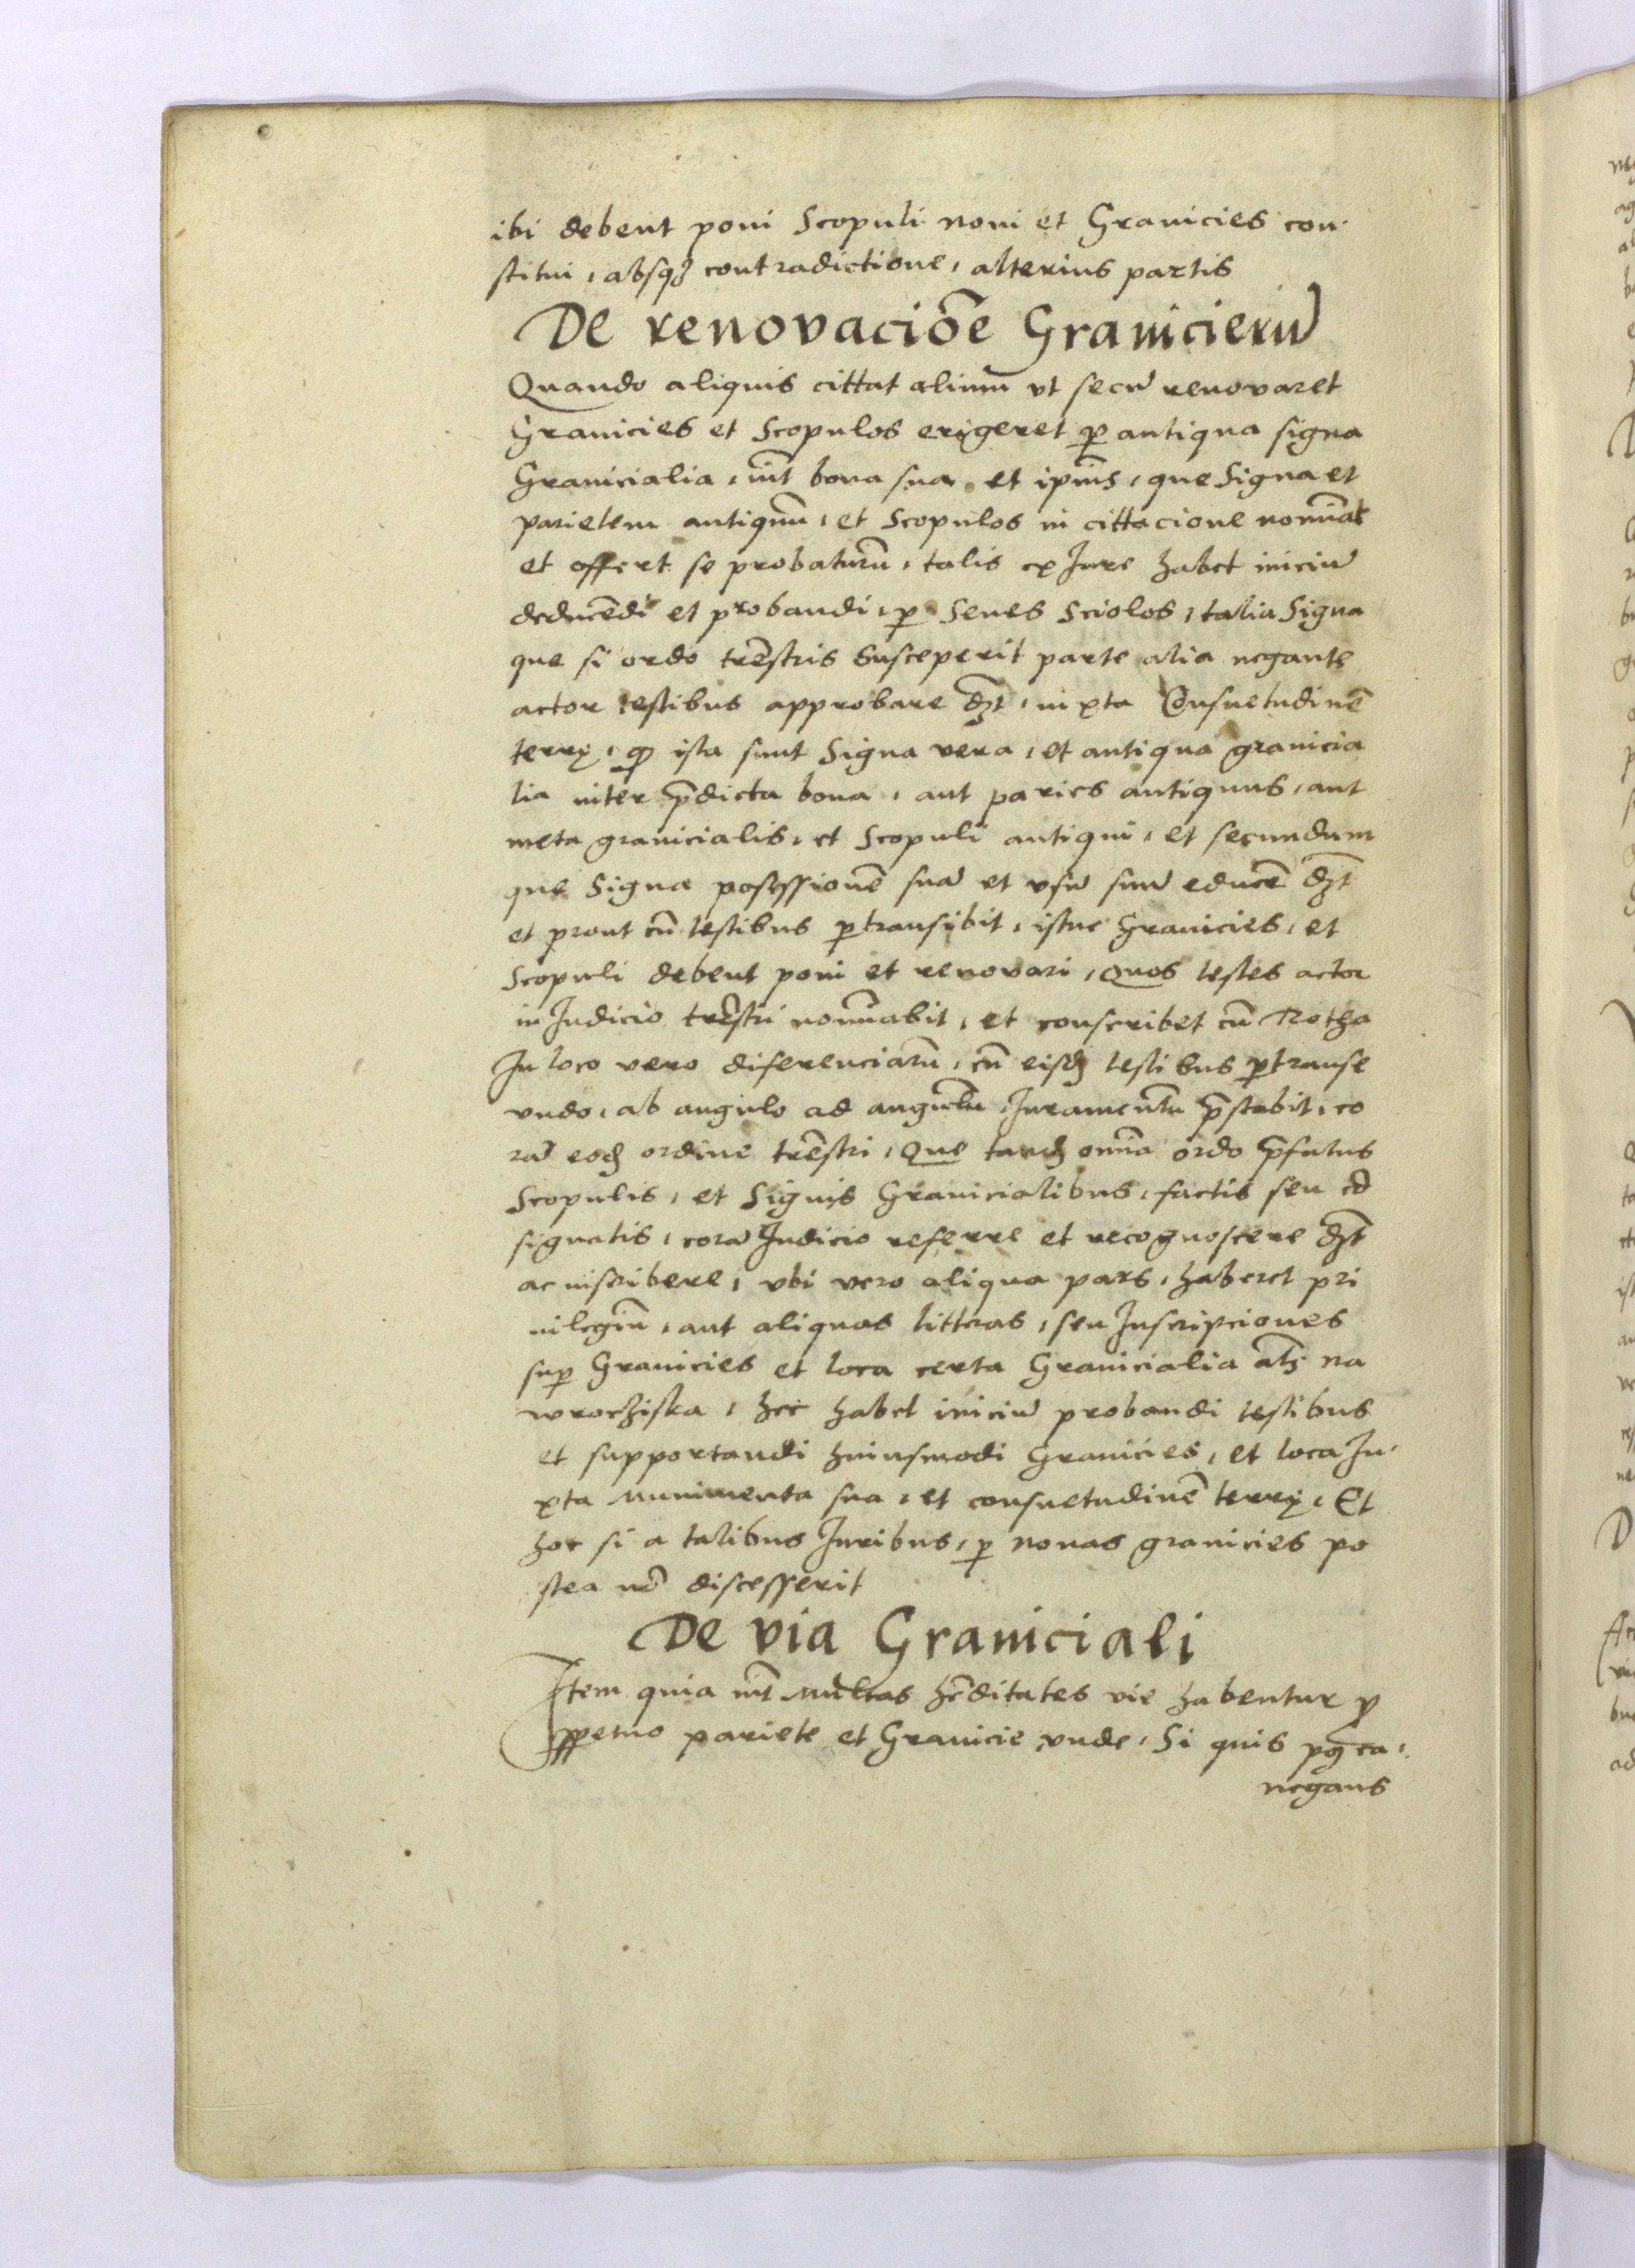 ibi debent poni Scopuli noui et Granicies con-
stitui, absqꝫ contradictione, alterius partis
De renovaciõe Granicierũ
Quando aliquis cittat alium vt secũ renovaret
Granicies et Scopulos erigeret ꝑ antiqua signa
Granicialia, int̃ bona sua et ip̃ius, que Signa et
parietem antiquũ, et Scopulos in cittacione nomĩat
et offert se probaturũ, talis ex Jure habet iniciũ
deducẽdi et probandi, ꝑ Senes Sciolos, talia Signa
que si ordo trẽstris Susceperit parte alia negante
actor testibus approbare dꝫt, iuxta Cõnsuetudinẽ
terrę, ꝙ ista sunt Signa vera, et antiqua granicia
lia inter p̃dicta bona, aut paries antiquus, aut
meta granicialis, et Scopuli antiqui, et secundum
que Signa possessionẽ suã et vsũ suũ educẽ dꝫt
et prout cũ testibus ꝑtransibit, istuc Granicies, et
Scopuli debent poni et renovari, Quos testes actor
in Judicio trẽstri nomĩabit, et conscribet cũ Rotha
In loco vero diferenciarũ, cũ eisdꝫ testibus ꝑtranse
undo, ab angulo ad angulũ, Juramentũ p̃stabit, co
rã eodꝫ ordine trẽstri, Que tandꝫ omĩa ordo p̃fatus
Scopulis, et Signis Granicialibus, factis seu cõ
signatis, corã Judicio referre et recognoscere dꝫt
ac inscribere, vbi vero aliqua pars, haberet pri
uilegiũ, aut aliquas litteras, seu Inscripciones
suꝑ Granicies et loca certa Granicialia al̃s na
wrocziska, hec habet iniciũ probandi testibus
et supportandi huiusmodi Granicies, et loca Ju-
xta Munimenta sua, et consuetudinẽ terrę, Et
hoc si a talibus Juribus, ꝑ nouas granicies po
stea nõ discesserit
De via Graniciali
Item quia int̃ Multas hẽditates vie habentur ꝓ
ꝑpetuo pariete et Granicie vnde, Si quis
negans